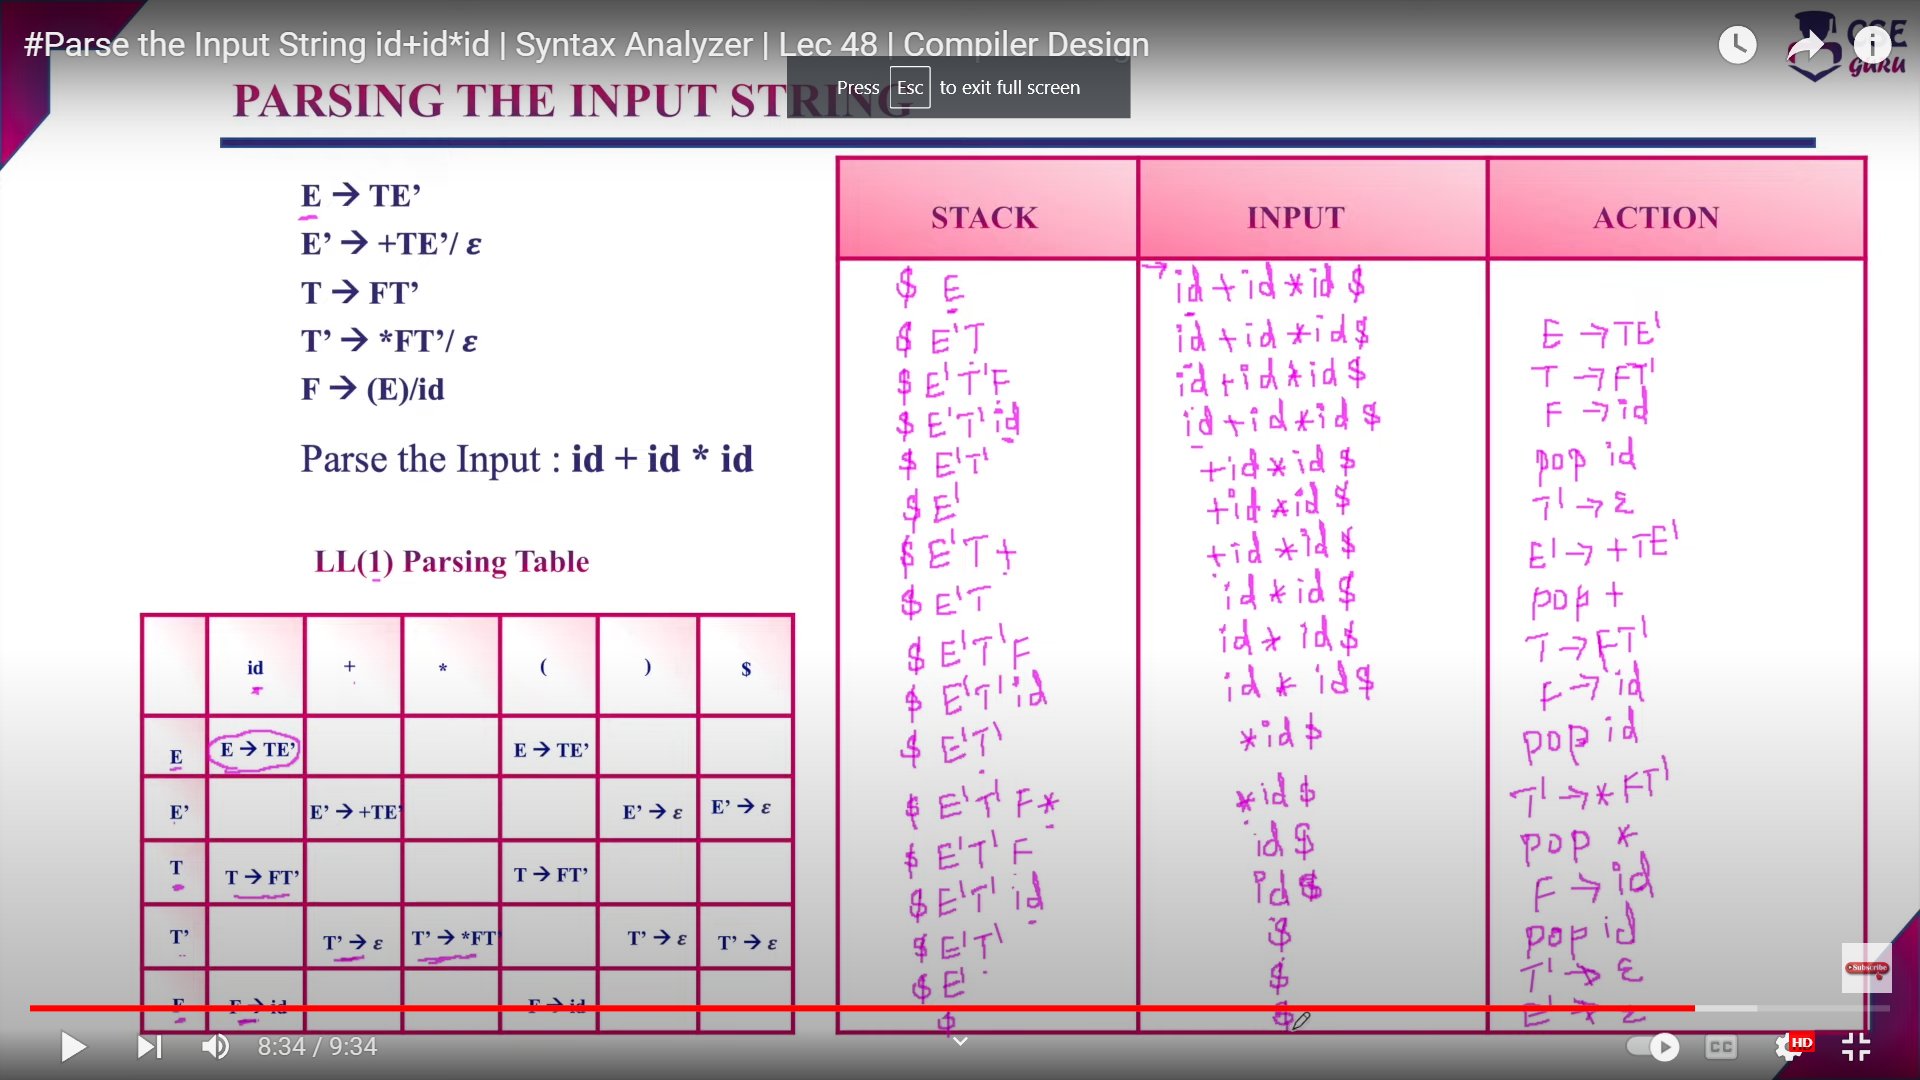 #Parse the Input String id+id*id | Syntax Analyzer | Lec 48 | Compiler Design
CSE
GURU
Press Esc to exit full screen
PARSING THE INPUT STRING
E → TE’
E’ → +TE’/ ε
T → FT’
T’ → *FT’/ ε
F → (E)/id
Parse the Input : id + id * id
LL(1) Parsing Table
id + * ( ) $
E E → TE’ E → TE’
E’ E’ → +TE’ E’ → ε E’ → ε
T T → FT’ T → FT’
T’ T’ → ε T’ → *FT’ T’ → ε T’ → ε
F F → id F → id
STACK INPUT ACTION
$ E → id + id * id $
$ E' T id + id * id $ E → TE'
$ E' T' F id + id * id $ T → FT'
$ E' T' id id + id * id $ F → id
$ E' T' + id * id $ pop id
$ E' + id * id $ T' → ε
$ E' T + + id * id $ E' → + TE'
$ E' T id * id $ pop +
$ E' T' F id * id $ T → FT'
$ E' T' id id * id $ F → id
$ E' T' * id $ pop id
$ E' T' F * * id $ T' → * FT'
$ E' T' F id $ pop *
$ E' T' id id $ F → id
$ E' T' $ pop id
$ E' $ T' → ε
$ $ E' → ε
Subscribe
8:34 / 9:34
CC
HD